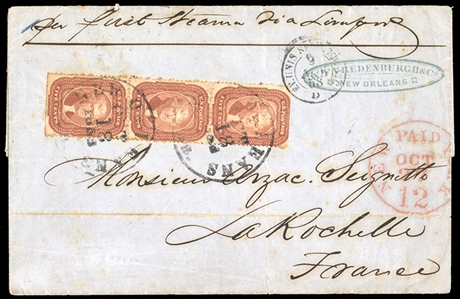 per first Steamer via Liverpool
VREDENBURGH & Co
NEW ORLEANS
PAID
OCT
12
Monsieur Arzac. Seignette
La Rochelle
France